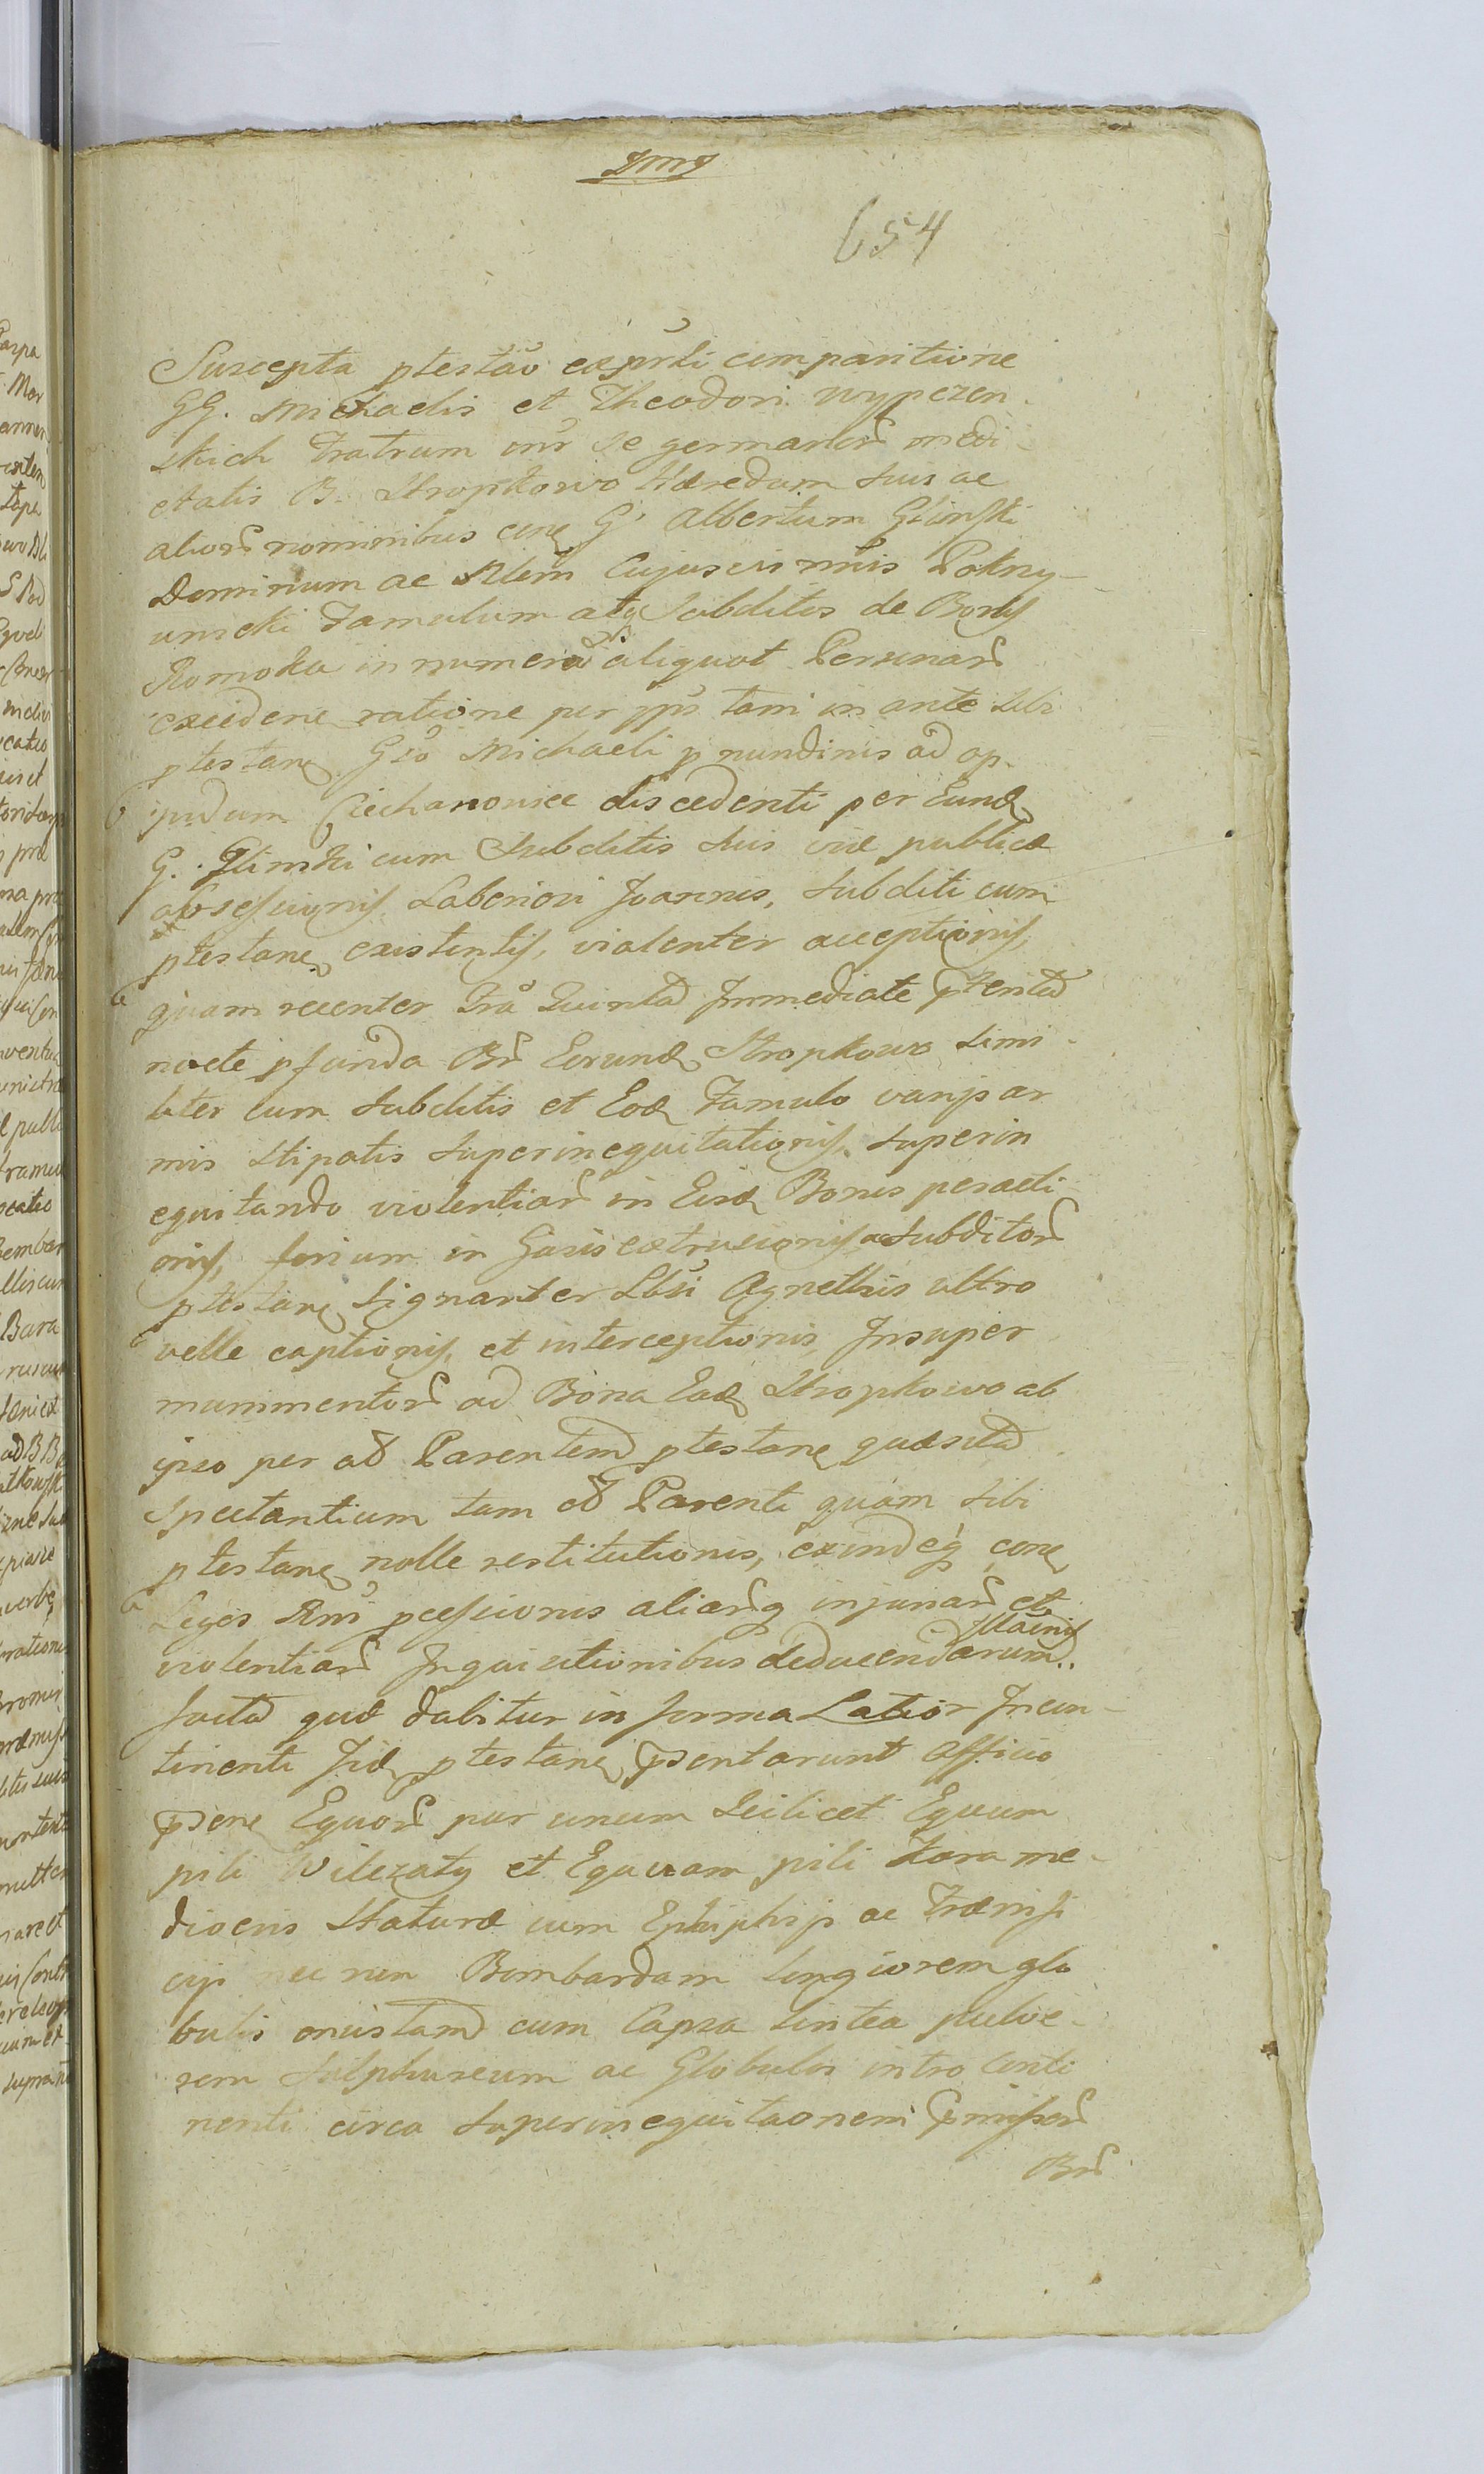 654
Suscepta ptestaō exprti comparitione
GG. Michaelis et Theodori wypczen-
skich Fratrum inr se germanor medi-
etatis B. Stropkowo Hæredum suis ac
alior nominibus cone G. Albertum Glinski
Dominum ac
unscki Famulum atq Subditos de Bonis
Romoka in numero aliquot Personar
ratione per tam in ante sibi
ptestane Gso Michaeli p nundinis ad op-
pidum Ciechanowiec discedenti per Eund
G. Glinski cum Subditis suis viæ publicæ
obsessionis Laboriosi Joannis, Subditi cum
ptestane existentis, violenter acceptionis,
quam recenter fra Quinta Immediate pterita
nocte pfunda Br Eorund Stropkowo simi-
liter cum Subditis et Eod Famulo varijs ar
mis stipatis superinequitationis, superin
equitando violentiar in Eisd Bonis peracti
onis, horium in extrusionis ac Subditor
ptestane signanter Lbsi Agnethis ultro
velle captionis, et interceptionis, Insuper
munimentor ad Bona Ead Stropkowo ab
ipso per ad Parentem ptestane quæsita
Spectantium tam ad Parenti quam sibi
ptestane nolle restitutionis, exindeq cone
Leges Rni pcessionis aliarq injuriar et
violentiar Inquisitionibus deducendarum
facta quæ dabitur in forma Latior Incon-
tinenti Iid ptestane psentarunt Officio
psene Equor par unum scilicet Equum
pili Wilczaty et Equam pili kara me-
diocris Staturæ cum Ephiphijs ac Frænis
nec non Bombardam longiorem glo
bulis onustam cum Capsa lintea pulve-
rem sulphureum ac Globulos intro conti
nenti circa superinequitaonem pmissor
Br